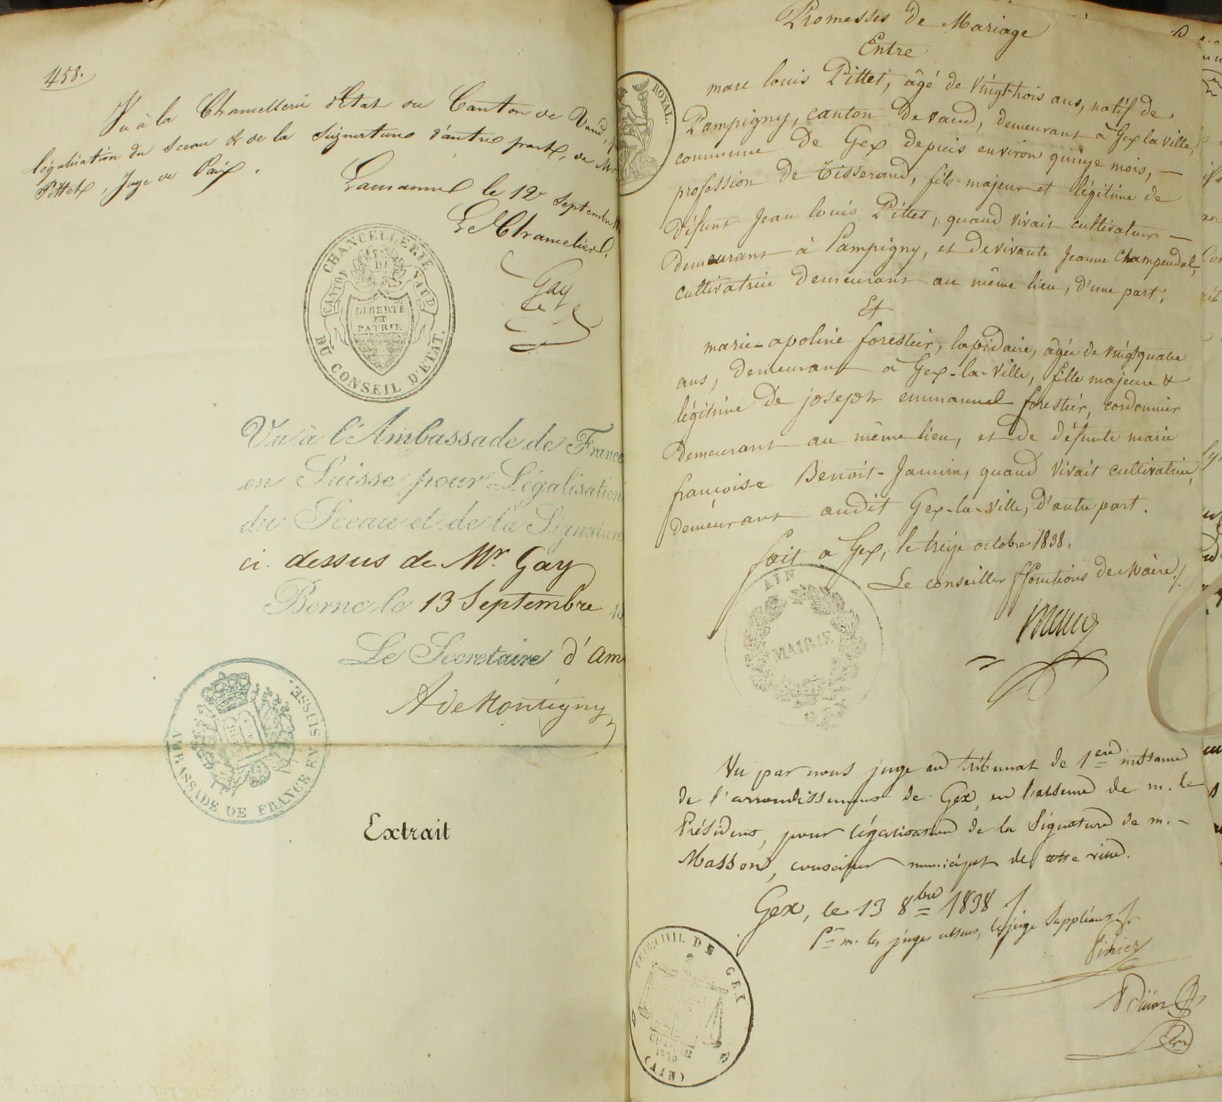 458.
Vu à la Chancellerie d'Etat du Canton de Vaud,
légalisation du Sceau & de la Signature d'autre part, de Mr
Pittet, Juge de Paix.
Lausanne le 12 Septembre
Le Chancelier,
Gay
CHANCELLERIE
DU CONSEIL D'ETAT.
CANTON DE VAUD
LIBERTE
ET
PATRIE
Vu à l'Ambassade de France
en Suisse pour Légalisation
du Sceau et de la Signature
ci-dessus de Mr. Gay
Berne le 13 Septembre
Le Secretaire d'Am
A de Montigny
AMBASSADE DE FRANCE EN SUISSE.
Extrait
ROYAL.
Promesses de Mariage
Entre
marc louis Pittet, âgé de vingt-trois ans, natif de
Pampigny, canton de vaud, demeurant à Gex la ville,
commune de Gex depuis environ quinze mois, —
profession de Tisserand, fils majeur et légitime de
défunt Jean louis Pittet, quand vivait cultivateur —
demeurant à Pampigny, et de vivante Jeanne Champendal,
cultivatrice demeurant au même lieu, d'une part;
Et
marie-apoline forestier, lapidaire, âgée de vingt quatre
ans, demeurant à Gex-la-ville, fille majeure &
légitime de joseph emmanuel forestier, cordonnier
demeurant au même lieu, et de défunte marie
françoise Benoit-Jannin, quand vivait cultivatrice
demeurant audit Gex-la-ville, d'autre part.
fait à Gex, le treize octobre 1838.
Le conseiller ffonctions de Maire,
AIN
MAIRIE
Vu par nous juge au tribunal de 1ere instance
de l'arrondissement de Gex, en l'absence de m. le
Président, pour légalisation de la Signature de m. —
Masson, conseiller municipal de cette ville.
Gex, le 13 8bre 1838
Pr m. les juges absents, le juge Suppléant
CIVIL DE GEX
(AIN)